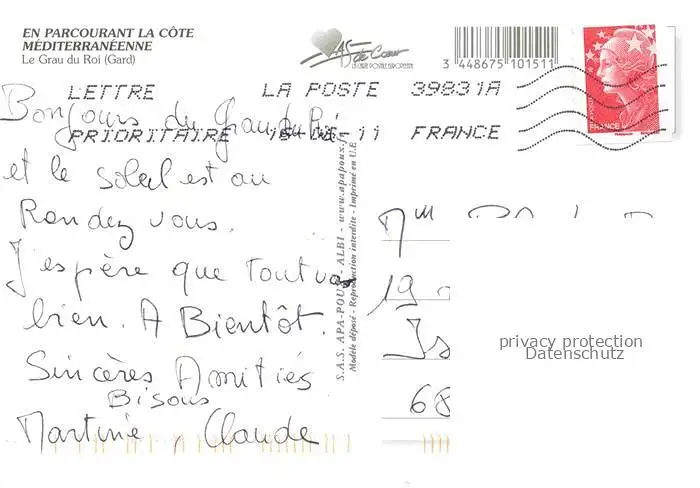 EN PARCOURANT LA CÔTE
MÉDITERRANÉENNE
Le Grau du Roi (Gard)
AS de Cœur
LA CARTE POSTALE EUROPÉENNE
3 448675 101511
LETTRE LA POSTE 39831A
PRIORITAIRE 11 FRANCE
FRANCE
Bonjours du Grau du Roi
et le soleil est au
Rendez vous.
J'espère que tout va
bien. A Bientôt.
Sincères Amitiés
Bisous
Martine, Claude
S.A.S. APA-POUX - ALBI - www.apapoux.
Modèle déposé - Reproduction interdite - Imprimé en U.E
19
68
privacy protection
Datenschutz